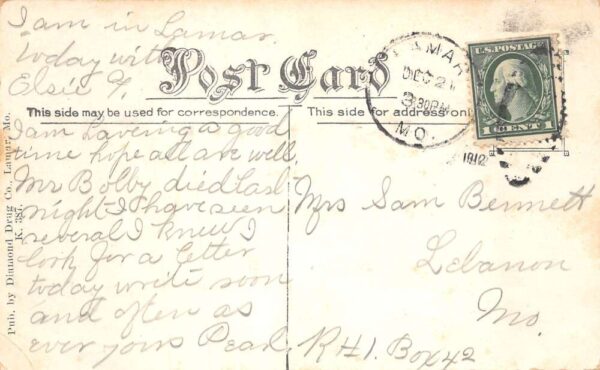 I am in Lamar
today with
Elsie Y.
Post Card
This side may be used for correspondence.
This side for address only
I am haveing a good
time hope all are well.
Mr Bolby died last
night I have seen
several I knew I
look for a letter
today write soon
and often as
ever yours Pearl
Pub. by Diamond Drug Co., Lamar, Mo.
K. 387.
LAMAR
DEC 21
3 30PM
MO.
1912
U.S. POSTAGE
1 CENT 1
Mrs Sam Bennett
Lebanon
Mo.
R H 1. Box 42